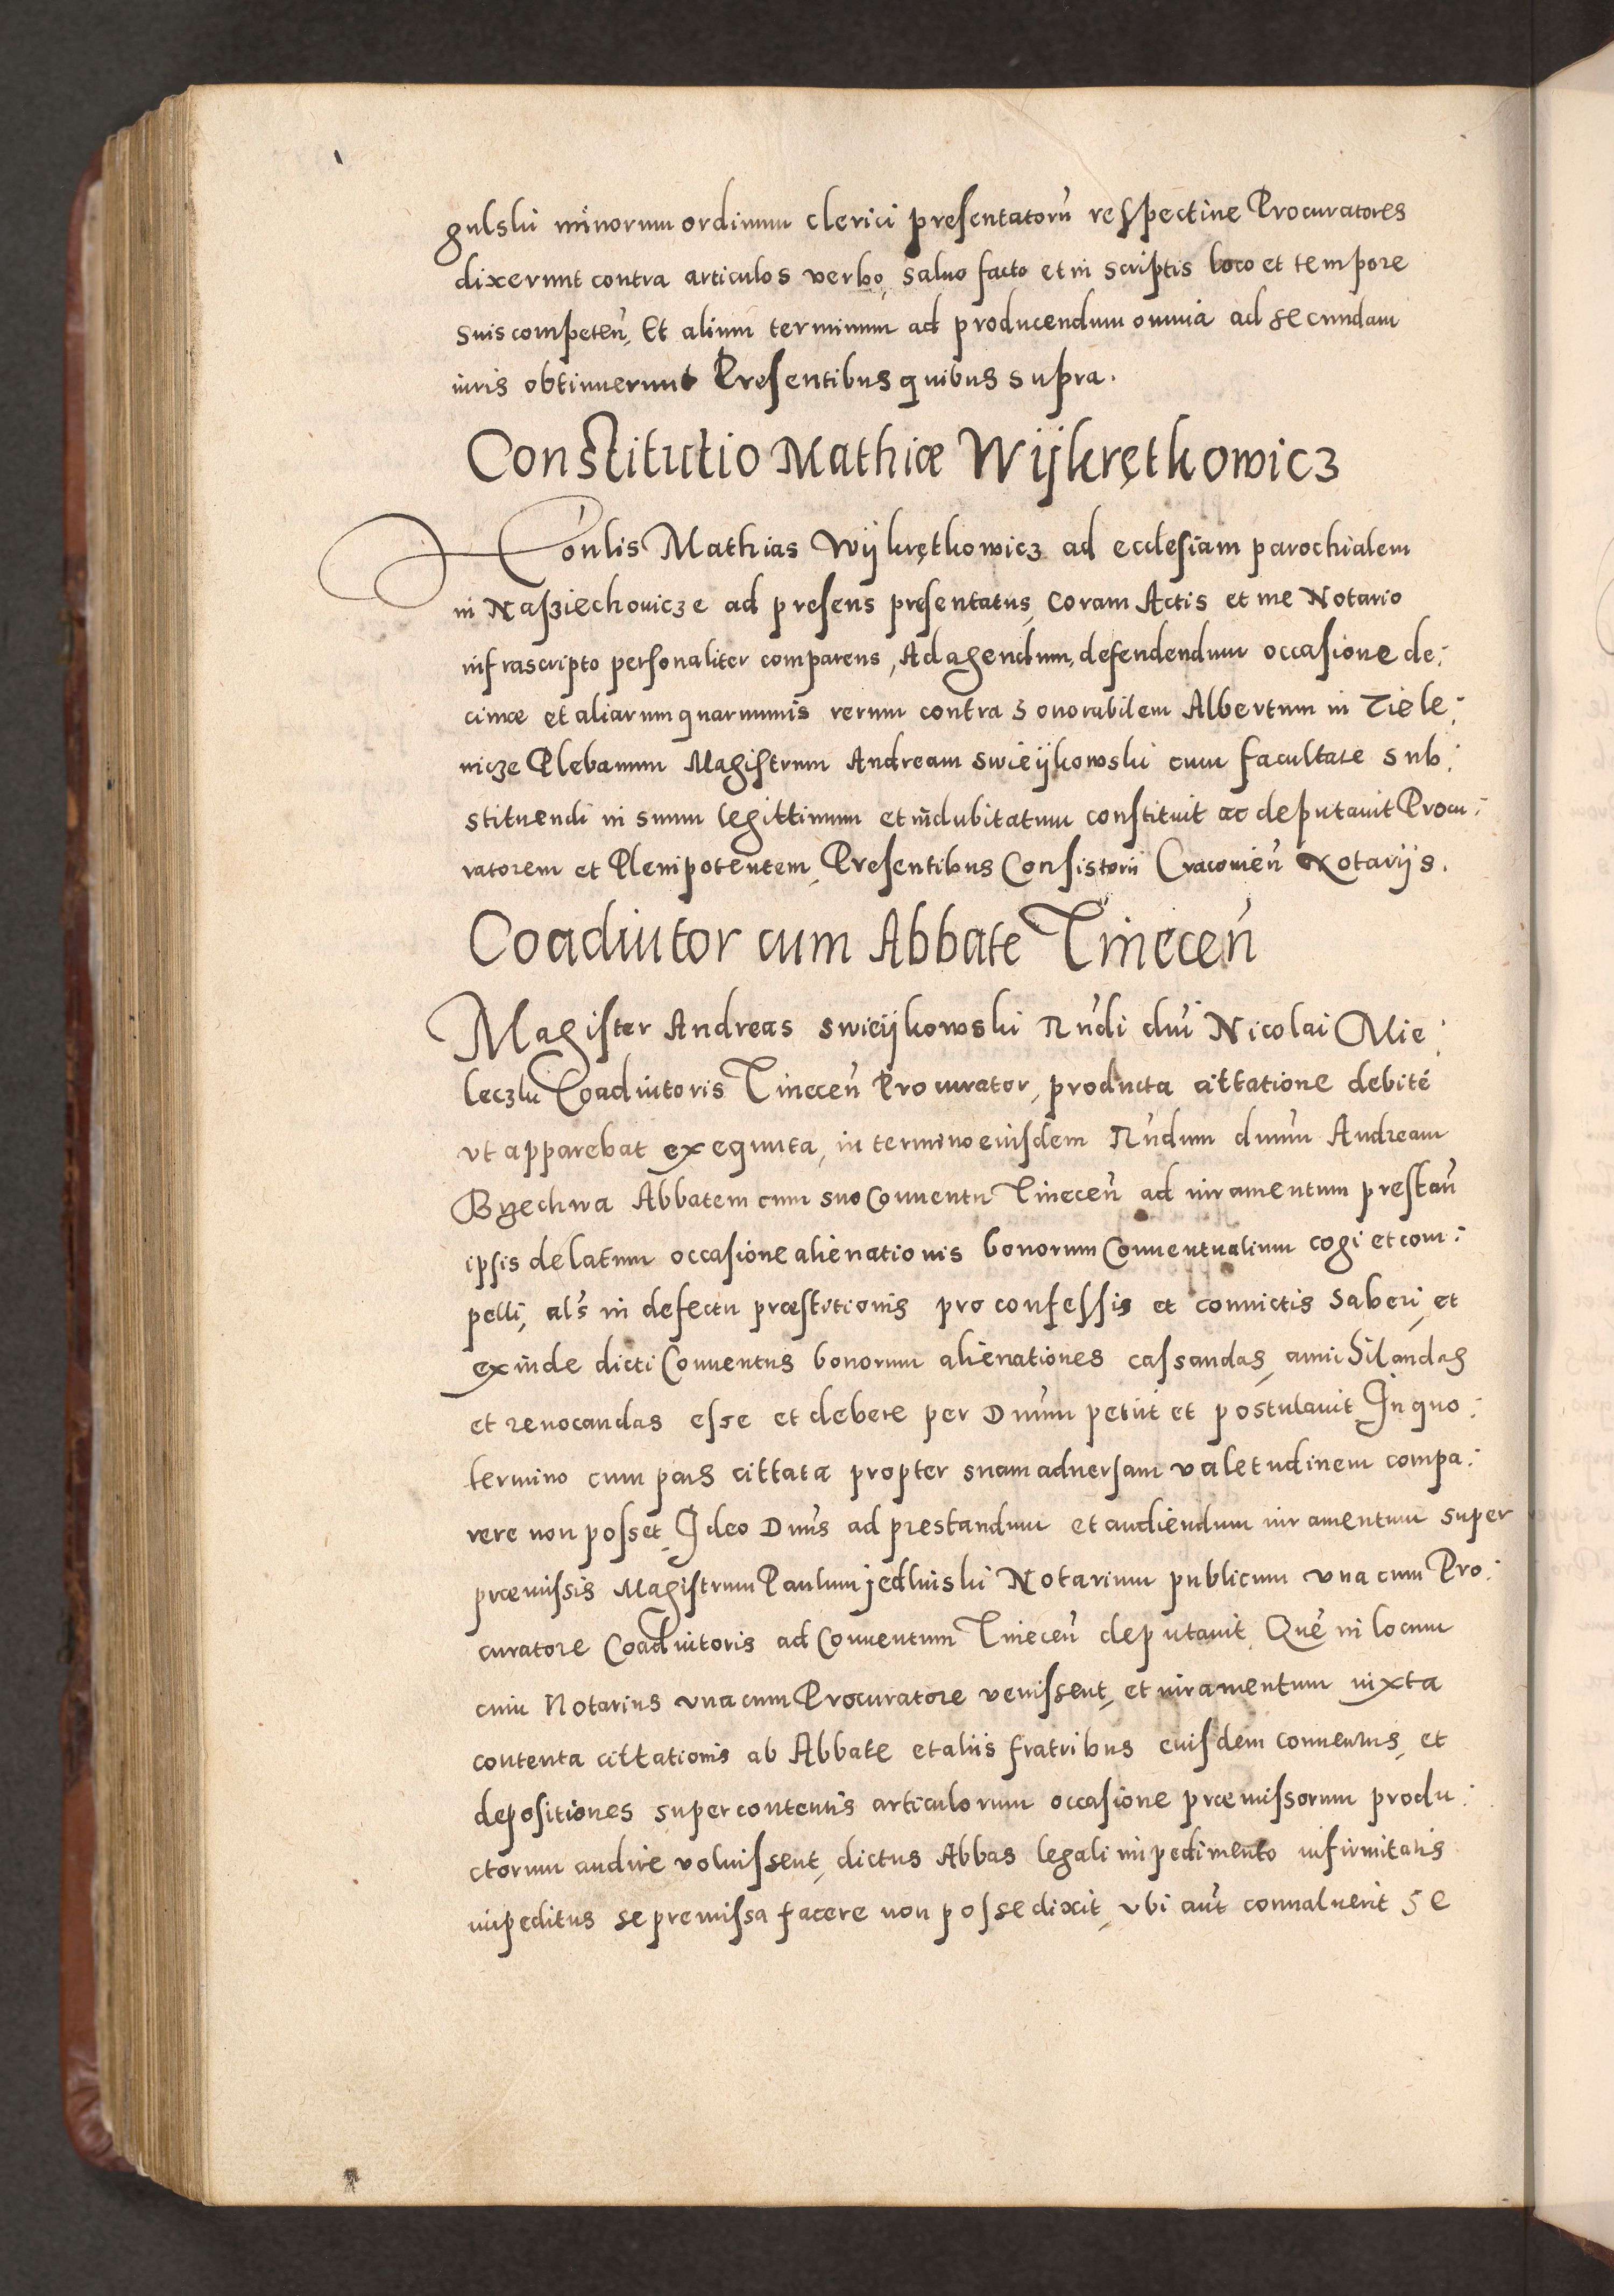 gulski minorum ordinum clerici presentatorũ respective Procuratores
dixerunt contra articulos verbo, salvo facto et in scriptis loco et tempore
suis competeñ, Et alium terminum ad producendum omnia ad secundam
iuris obtinuerunt Presentibus quibus supra.
Constitutio Mathiæ Wijkrętkowicz
Honlis Mathias Wijkrętkowicz ad ecclesiam parochialem
in Nasziechovicze ad presens presentatus, coram Actis et me Notario
infrascripto personaliter comparens, Ad agendum, defendendum occasione de:
cimæ et aliarum quarumvis rerum contra Honorabilem Albertum in Ziele:
nicze Plebanum Magistrum Andream Swieijkowski cum facultate sub:
stituendi in suum legittimum et indubitatum constituit ac deputavit Procu:
ratorem et Plenipotentem, Presentibus Consistorii Cracovieñ Notarijs.
Coadiutor cum Abbate Tineceñ
Magister Andreas Swieijkowski Rñdi dñi Nicolai Mie:
leczki Coadiutoris Tineceñ Procurator, producta cittatione debite
ut apparebat exequuta, in termino eiusdem Rñdum dnum Andream
Brzechwa Abbatem cum suo Conventu Tineceñ ad iuramentum prestañ
ipsis delatum occasione alienationis bonorum Conventualium cogi et com:
pelli, als in defectu præstitionis pro confessis et convictis haberi, et
exinde dicti Conventus bonorum alienationes cassandas, annihilandas
et revocandas esse et debere per Dnum petiit et postulavit In quo:
termino cum pars cittata propter suam adversam valetudinem compa:
rere non posset, Ideo Dnus ad prestandum et audiendum iuramentum super
præmissis Magistrum Paulum Jedliiski Notarium publicum una cum Pro:
curatore Coadiutoris ad Conventum Tineceñ deputavit, Que in locum
cum Notarius una cum Procuratore venissent, et iuramentum iuxta
contenta cittationis ab Abbate et aliis fratribus eiusdem conventus, et
depositiones super contentis articulorum occasione præmissorum produ:
ctorum audire voluissent, dictus Abbas legali impedimento infirmitatis
impeditus se premissa facere non posse dixit, ubi aut convaluerit se